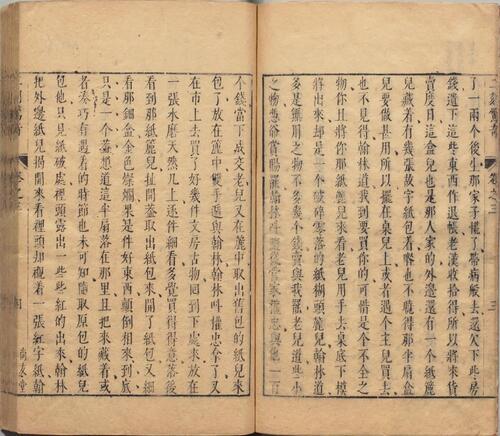 了一兩個後生那家子慌了帶病般去還欠下些房
錢遺下這些東西作退帳老漢收拾得所以將來貨
賣度日這盒兒也是那人家的外邊還有一個紙簏
兒藏着有幾張故字紙包着咱也不曉得那半扇盒
兒要做甚用所以擺在桌兒上或者遇個主兒買去
也不見得翰林道我到要買你的可惜是個不全之
物你且將你那紙簏兒來看老兒用手去桌底下摸
將出來却是一個破碎零落的紙糊頭簏兒翰林道
多是無用之物不多幾個錢賣與我罷老兒道些小
之物憑爺賞賜罷翰林叫隨從管家權忠與他一百
個錢當下成交老兒又在簏中取出舊包的紙兒來
包了放在簏中雙手遞與翰林翰林叫權忠拿了又
在市上去買了好幾件文房古物回到下處來放在
一張水磨天然几上逐件細看多覺買得得意落後
看到那紙簏兒扯開蓋取出紙包來開了紙包又細
看那鈿盒金色燦爛果是件好東西顛倒相來到底
只是一個蓋想道這半扇落在那里且把來藏着或
者湊巧有遇着的時節也未可知隨取原包的紙兒
包他只見紙破處裡頭露出一些些紅的出來翰林
把外邊紙兒揭開來看裡頭却襯着一張紅字紙翰
卷之三
尚友堂